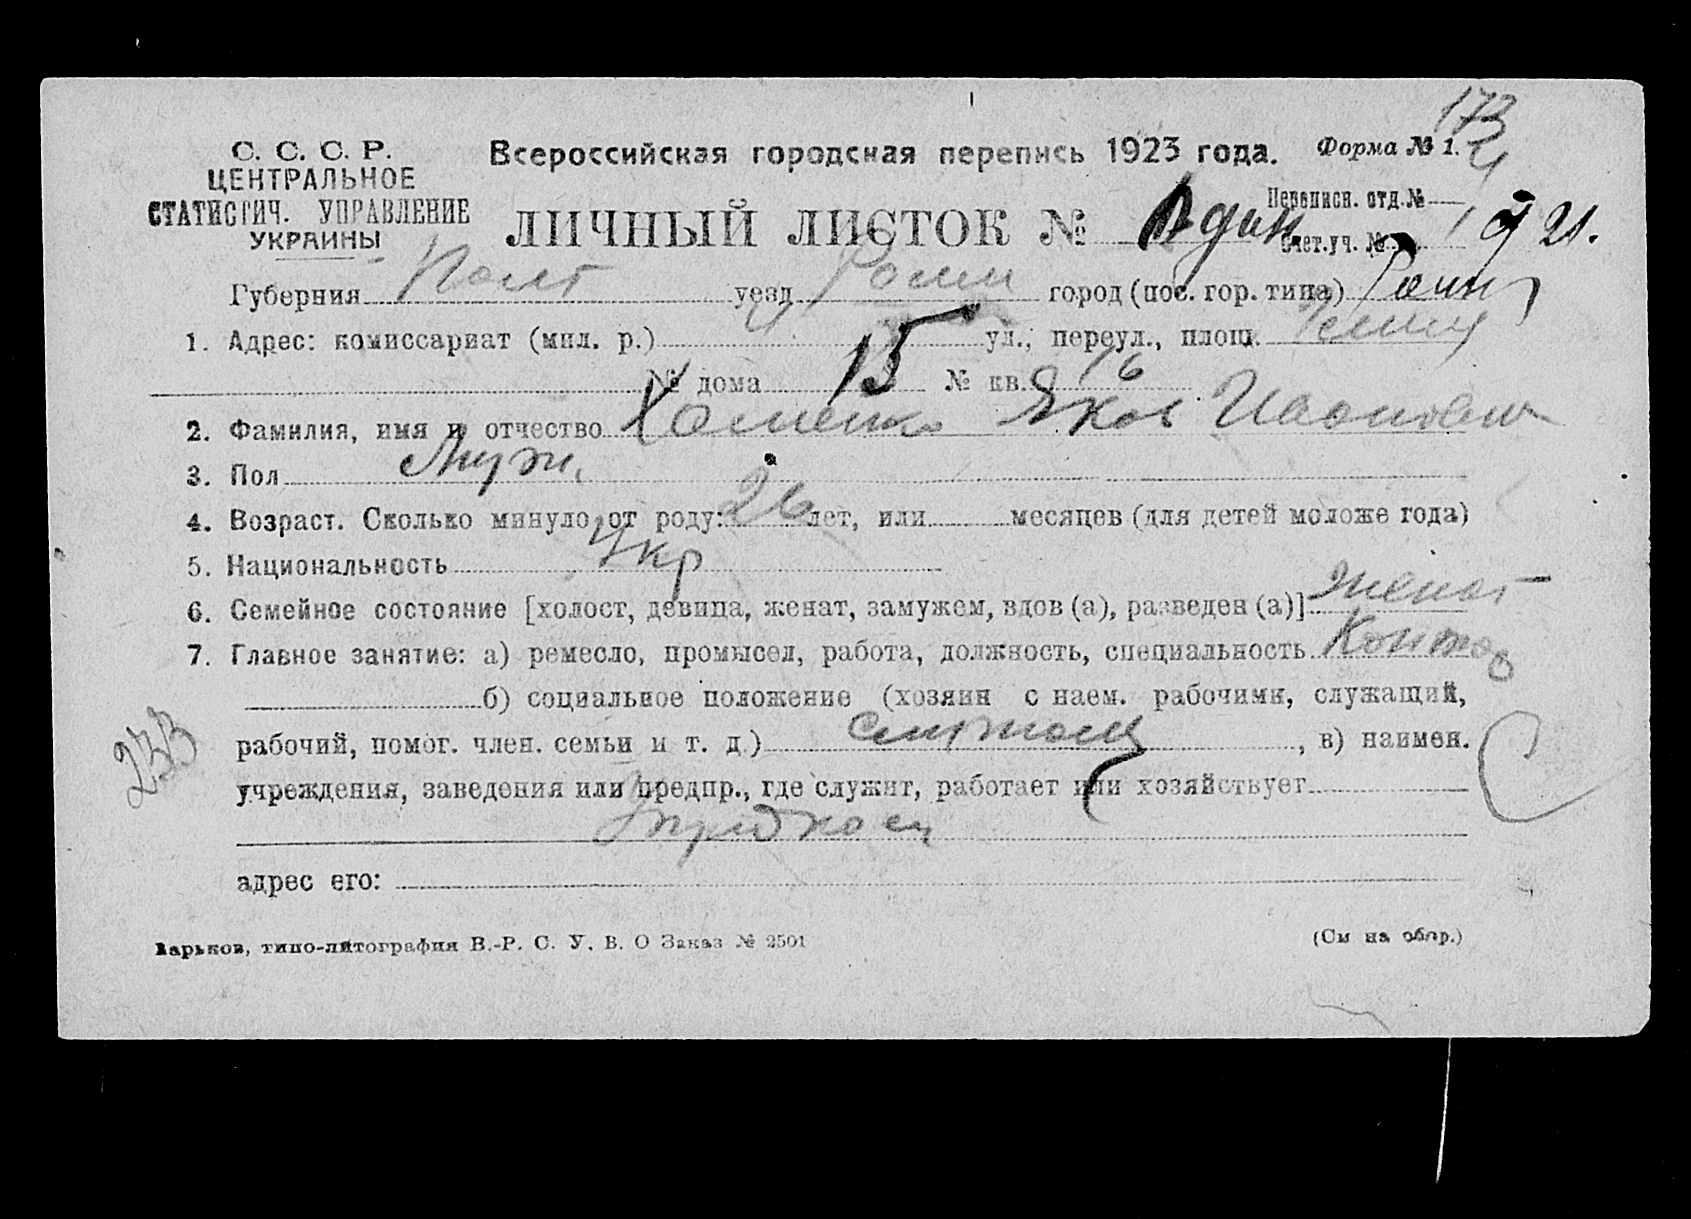 173
С. С. С. Р.
ЦЕНТРАЛЬНОЕ
СТАТИСТИЧ. УПРАВЛЕНИЕ
УКРАИНЫ
Всероссийская городская перепись 1923 года. Форма № 1.
ЛИЧНЫЙ ЛИСТОК № Один
Переписн. отд. №
Счет.уч. №
Губерния Полт уезд Ромн город (пос. гор. типа) Ромн
1. Адрес: комиссариат (мил. р.) ул., переул., площ.
№ дома 15 № кв. 16
2. Фамилия, имя и отчество Хоменко Яков Иванович
3. Пол Муж.
4. Возраст. Сколько минуло от роду: 26 лет, или месяцев (для детей моложе года)
5. Национальность Укр
6. Семейное состояние [холост, девица, женат, замужем, вдов (а), разведен (а)] женат
7. Главное занятие: а) ремесло, промысел, работа, должность, специальность Контор
б) социальное положение (хозяин с наем. рабочими, служащий,
рабочий, помог. член. семьи и т. д.) , в) наимен.
233
учреждения, заведения или предпр., где служит, работает или хозяйствует
адрес его:
Харьков, типо-литография В.-Р. С. У. В. О Заказ № 2501
(См на обор.)